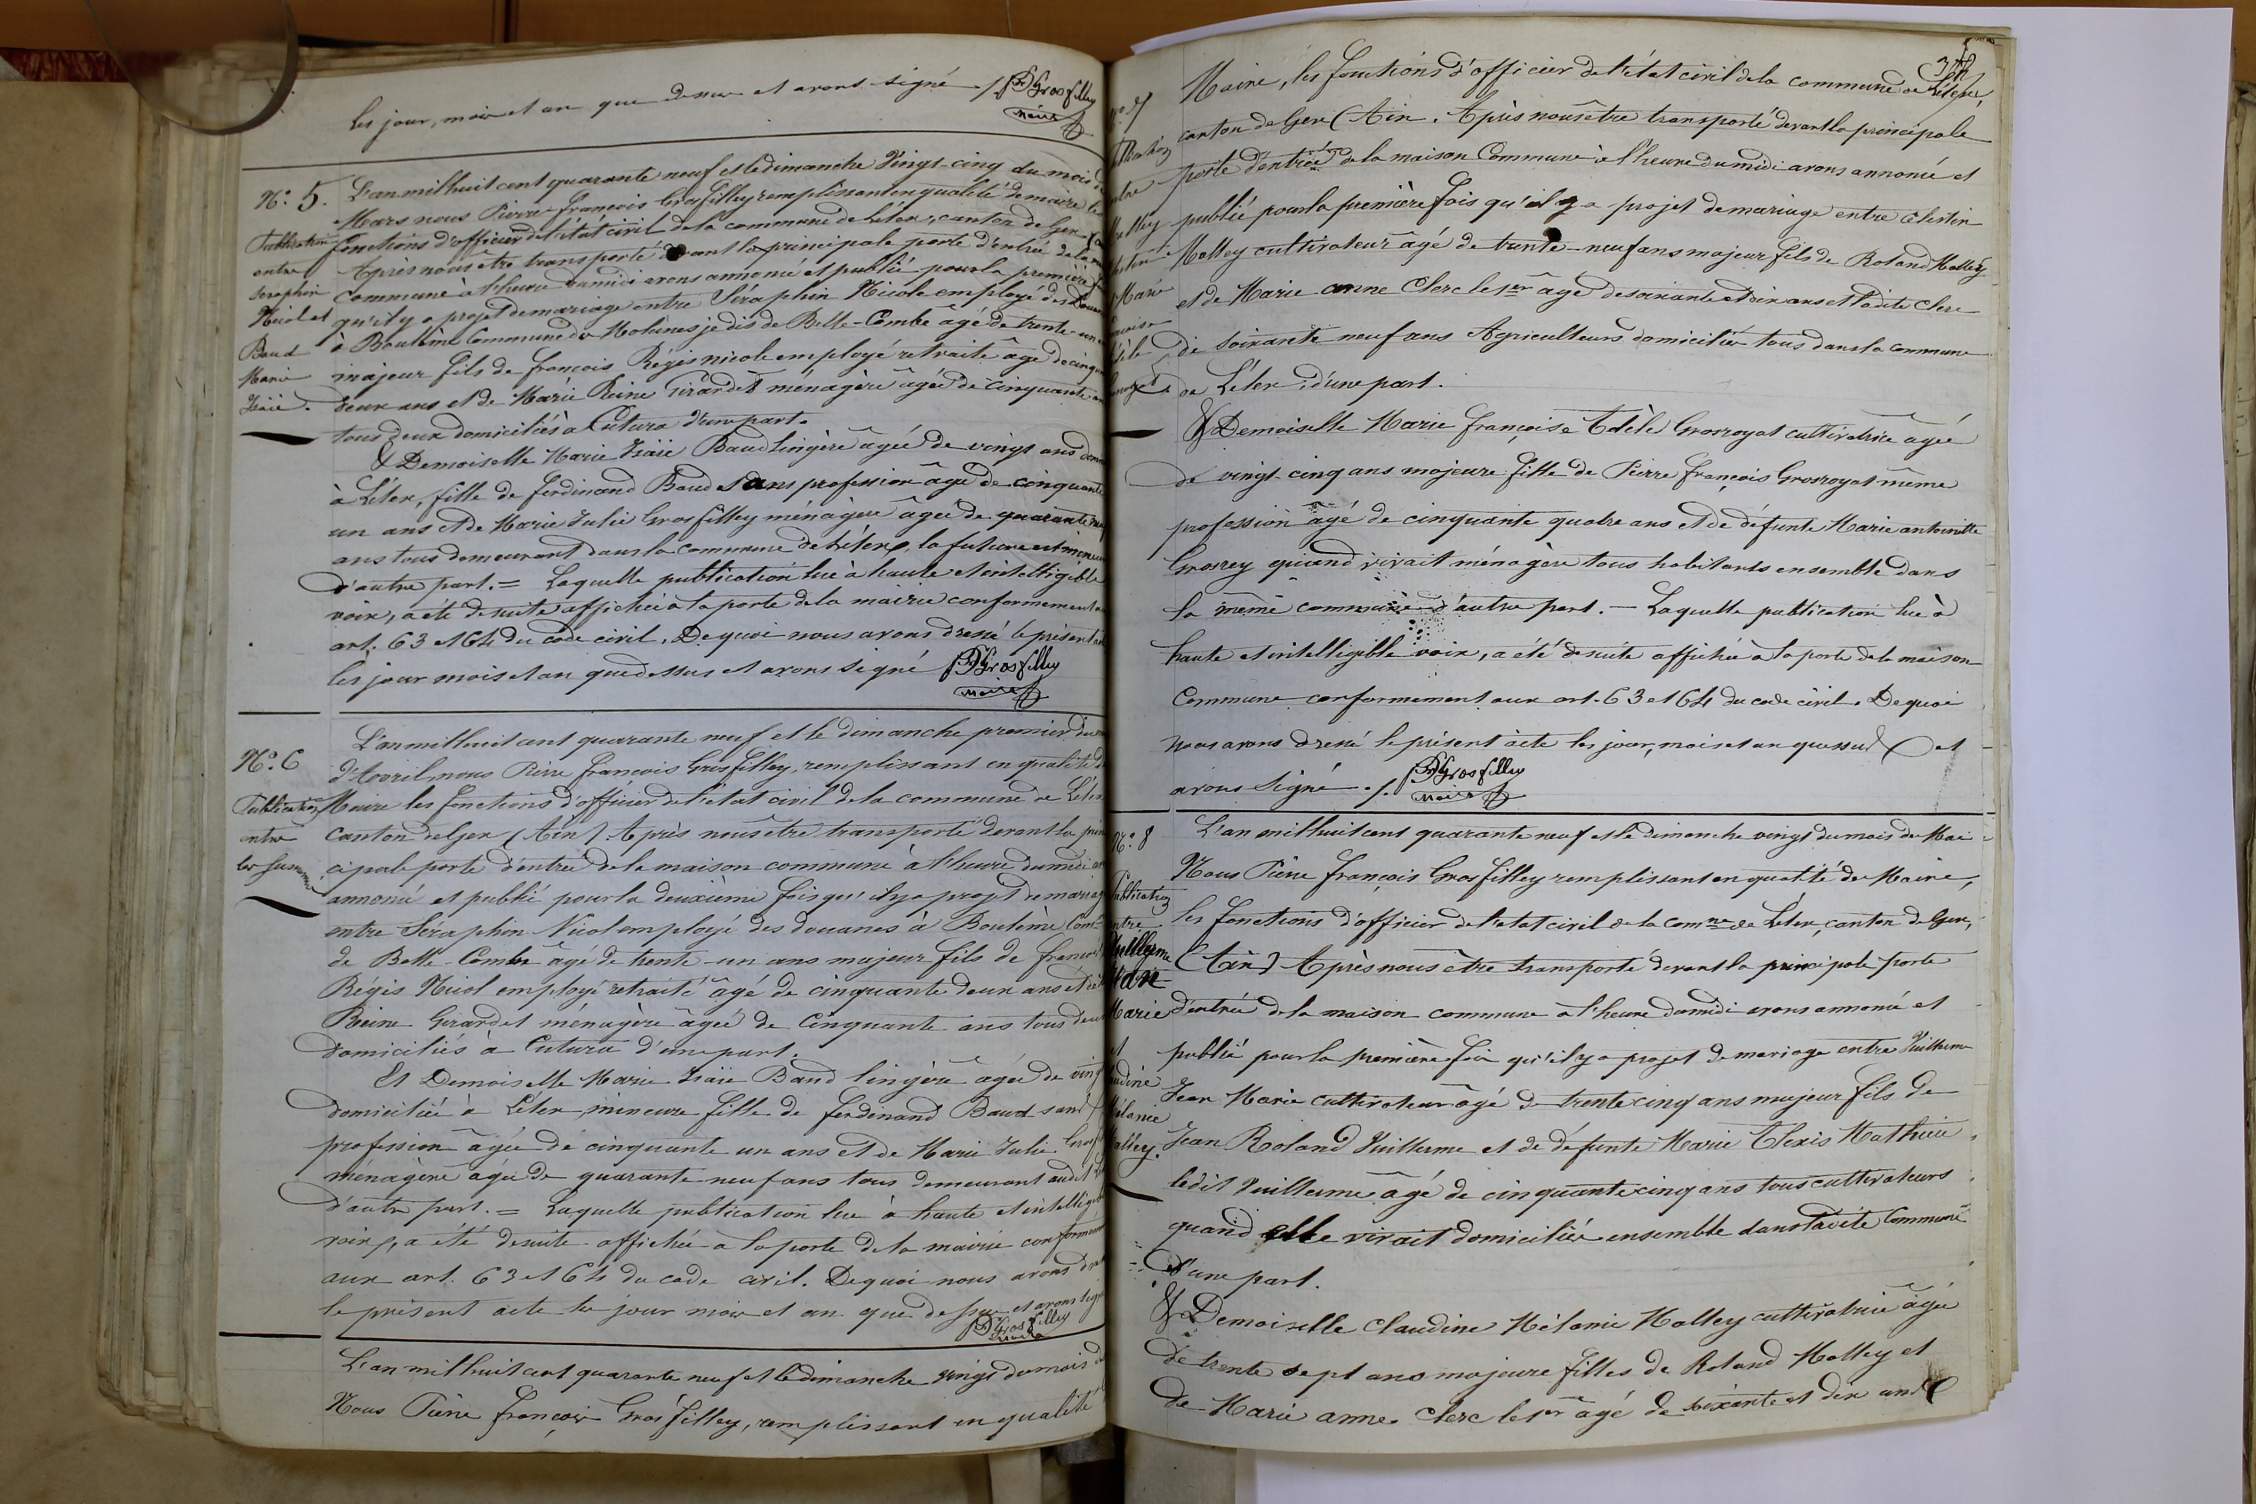 les jour, mois et an que dessus et avons signé ./. PFGrosfilley
Maire
N.º 5.
Publication
entre
Séraphin
Nicol et
Baud
Marie
Izaïe.
L'an mil huit cent quarante neuf et le dimanche Vingt-cinq du mois de
Mars nous Pierre-françois Grosfilley remplissant en qualité de maire les
fonctions d'officier de l'état civil de la commune de Lélex, canton de Gex
Après nous être transporté devant la principale porte d'entrée de la
commune à l'heure de midi avons annoncé et publié pour la première
qu'il y a projet de mariage entre Séraphin Nicole employé des
à Boulème Commune de Molunes je dis de Belle-Combe âgé de trente-un
majeur fils de françois Régis nicole employé retraité âgé de cinquante
deux ans et de Marie Reine Girardet ménagère âgée de cinquante
tous deux domiciliés à Cutura d'une part.
& Demoiselle Marie Izaïe Baud lingère âgée de vingt ans
à Lélex, fille de ferdinand Baud sans profession âgé de cinquante
un ans et de Marie Julie Grosfilley ménagère âgée de quarante neuf
ans tous demeurant dans la commune de Lélex, la future est mineure
d'autre part. = Laquelle publication lue à haute et intelligible
voix, a été de suite affichée à la porte de la mairie conformement
art. 63 et 64 du code civil. De quoi nous avons dressé le présent
les jour mois et an que dessus et avons signé PFGrosfilley
Maire
N.º 6
Publication
entre
les susnommés
L'an mil huit cent quarante neuf et le dimanche premier du
d'Avril, nous Pierre françois Grosfilley, remplissant en qualité de
Maire les fonctions d'officier de l'état civil de la commune de Lélex
canton de Gex (Ain). Après nous être transporté devant la prin
cipale porte d'entrée de la maison commune à l'heure de midi
annoncé et publié pour la deuxième fois qu'il y a projet de mariage
entre Séraphin Nicol employé des douanes à Boulème Com.ne
de Belle-Combe âgé de trente-un ans majeur fils de françois
Régis Nicol employé retraité âgé de cinquante deux ans et de
Reine Girardet ménagère âgée de Cinquante ans tous deux
domiciliés à Cutura d'une part.
Et Demoiselle Marie Izaïe Baud lingère âgée de vingt
domiciliée à Lélex, mineure fille de ferdinand Baud sans
profession âgée de cinquante un ans et de Marie Julie Grosf
ménagère âgée de quarante neuf ans tous demeurant audit
d'autre part. = Laquelle publication lue à haute et intelligible
voix, a été de suite affichée à la porte de la mairie conformement
aux art. 63 et 64 du code civil. De quoi nous avons
le présent acte les jour mois et an que dessus et avons signé
PFGrosfilley
L'an mil huit cent quarante neuf et le dimanche vingt du mois de
Nous Pierre françois Grosfilley, remplissant en qualité
Maire, les fonctions d'officier de l'état civil de la commune de Lélex,
canton de Gex (Ain. Après nous être transporté devant la principale
porte d'entrée de la maison Commune à l'heure du midi avons annoncé et
publié pour la première fois qu'il y a projet de mariage entre Célestin
Molley cultivateur âgé de trente-neuf ans majeur fils de Roland Molley
et de Marie anne Clerc le 1er âgé de soixante et dix ans et ladite Clerc
de soixante neuf ans Agriculteurs domiciliés tous dans la commune
de Lélex, d'une part.
& Demoiselle Marie françoise Adèle Grosroyat cultivatrice âgée
de vingt-cinq ans majeure fille de Pierre françois Grosroyat même
profession âgé de cinquante quatre ans et de défunte Marie antoinette
Grosrey quand vivait ménagère tous habitants ensemble dans
la même commune d'autre part. — Laquelle publication lue à
haute et intelligible voix, a été de suite affichée à la porte de la maison
Commune conformement aux art. 63 et 64 du code civil. De quoi
nous avons dressé le présent acte les jour, mois et an que sus et
avons signé ./. PFGrosfilley
Maire
N.º 8
Publication
entre
Vuillerme
Jean
Marie
et
Claudine
Mélanie
Molley.
L'an mil huit cent quarante neuf et le dimanche vingt du mois de Mai
Nous Pierre françois Grosfilley remplissant en qualité de Maire,
les fonctions d'officier de l'etat civil de la Com.ne de Lélex, canton de Gex,
(Ain) Après nous être transporté devant la principale porte
d'entrée de la maison commune à l'heure de midi avons annoncé et
publié pour la première fois qu'il y a projet de mariage entre Vuillerme
Jean Marie cultivateur âgé de trente cinq ans majeur fils de
Jean Roland Vuillerme et de défunte Marie Alexis Mathieu
ledit Vuillerme âgé de cinquante cinq ans tous cultivateurs
quand elle vivait domiciliés ensemble dans ladite Commune
d'une part.
& Demoiselle Claudine Mélanie Molley cultivatrice âgée
de trente sept ans majeure filles de Roland Molley et
de Marie anne Clerc le 1er âgé de soixante et dix ans